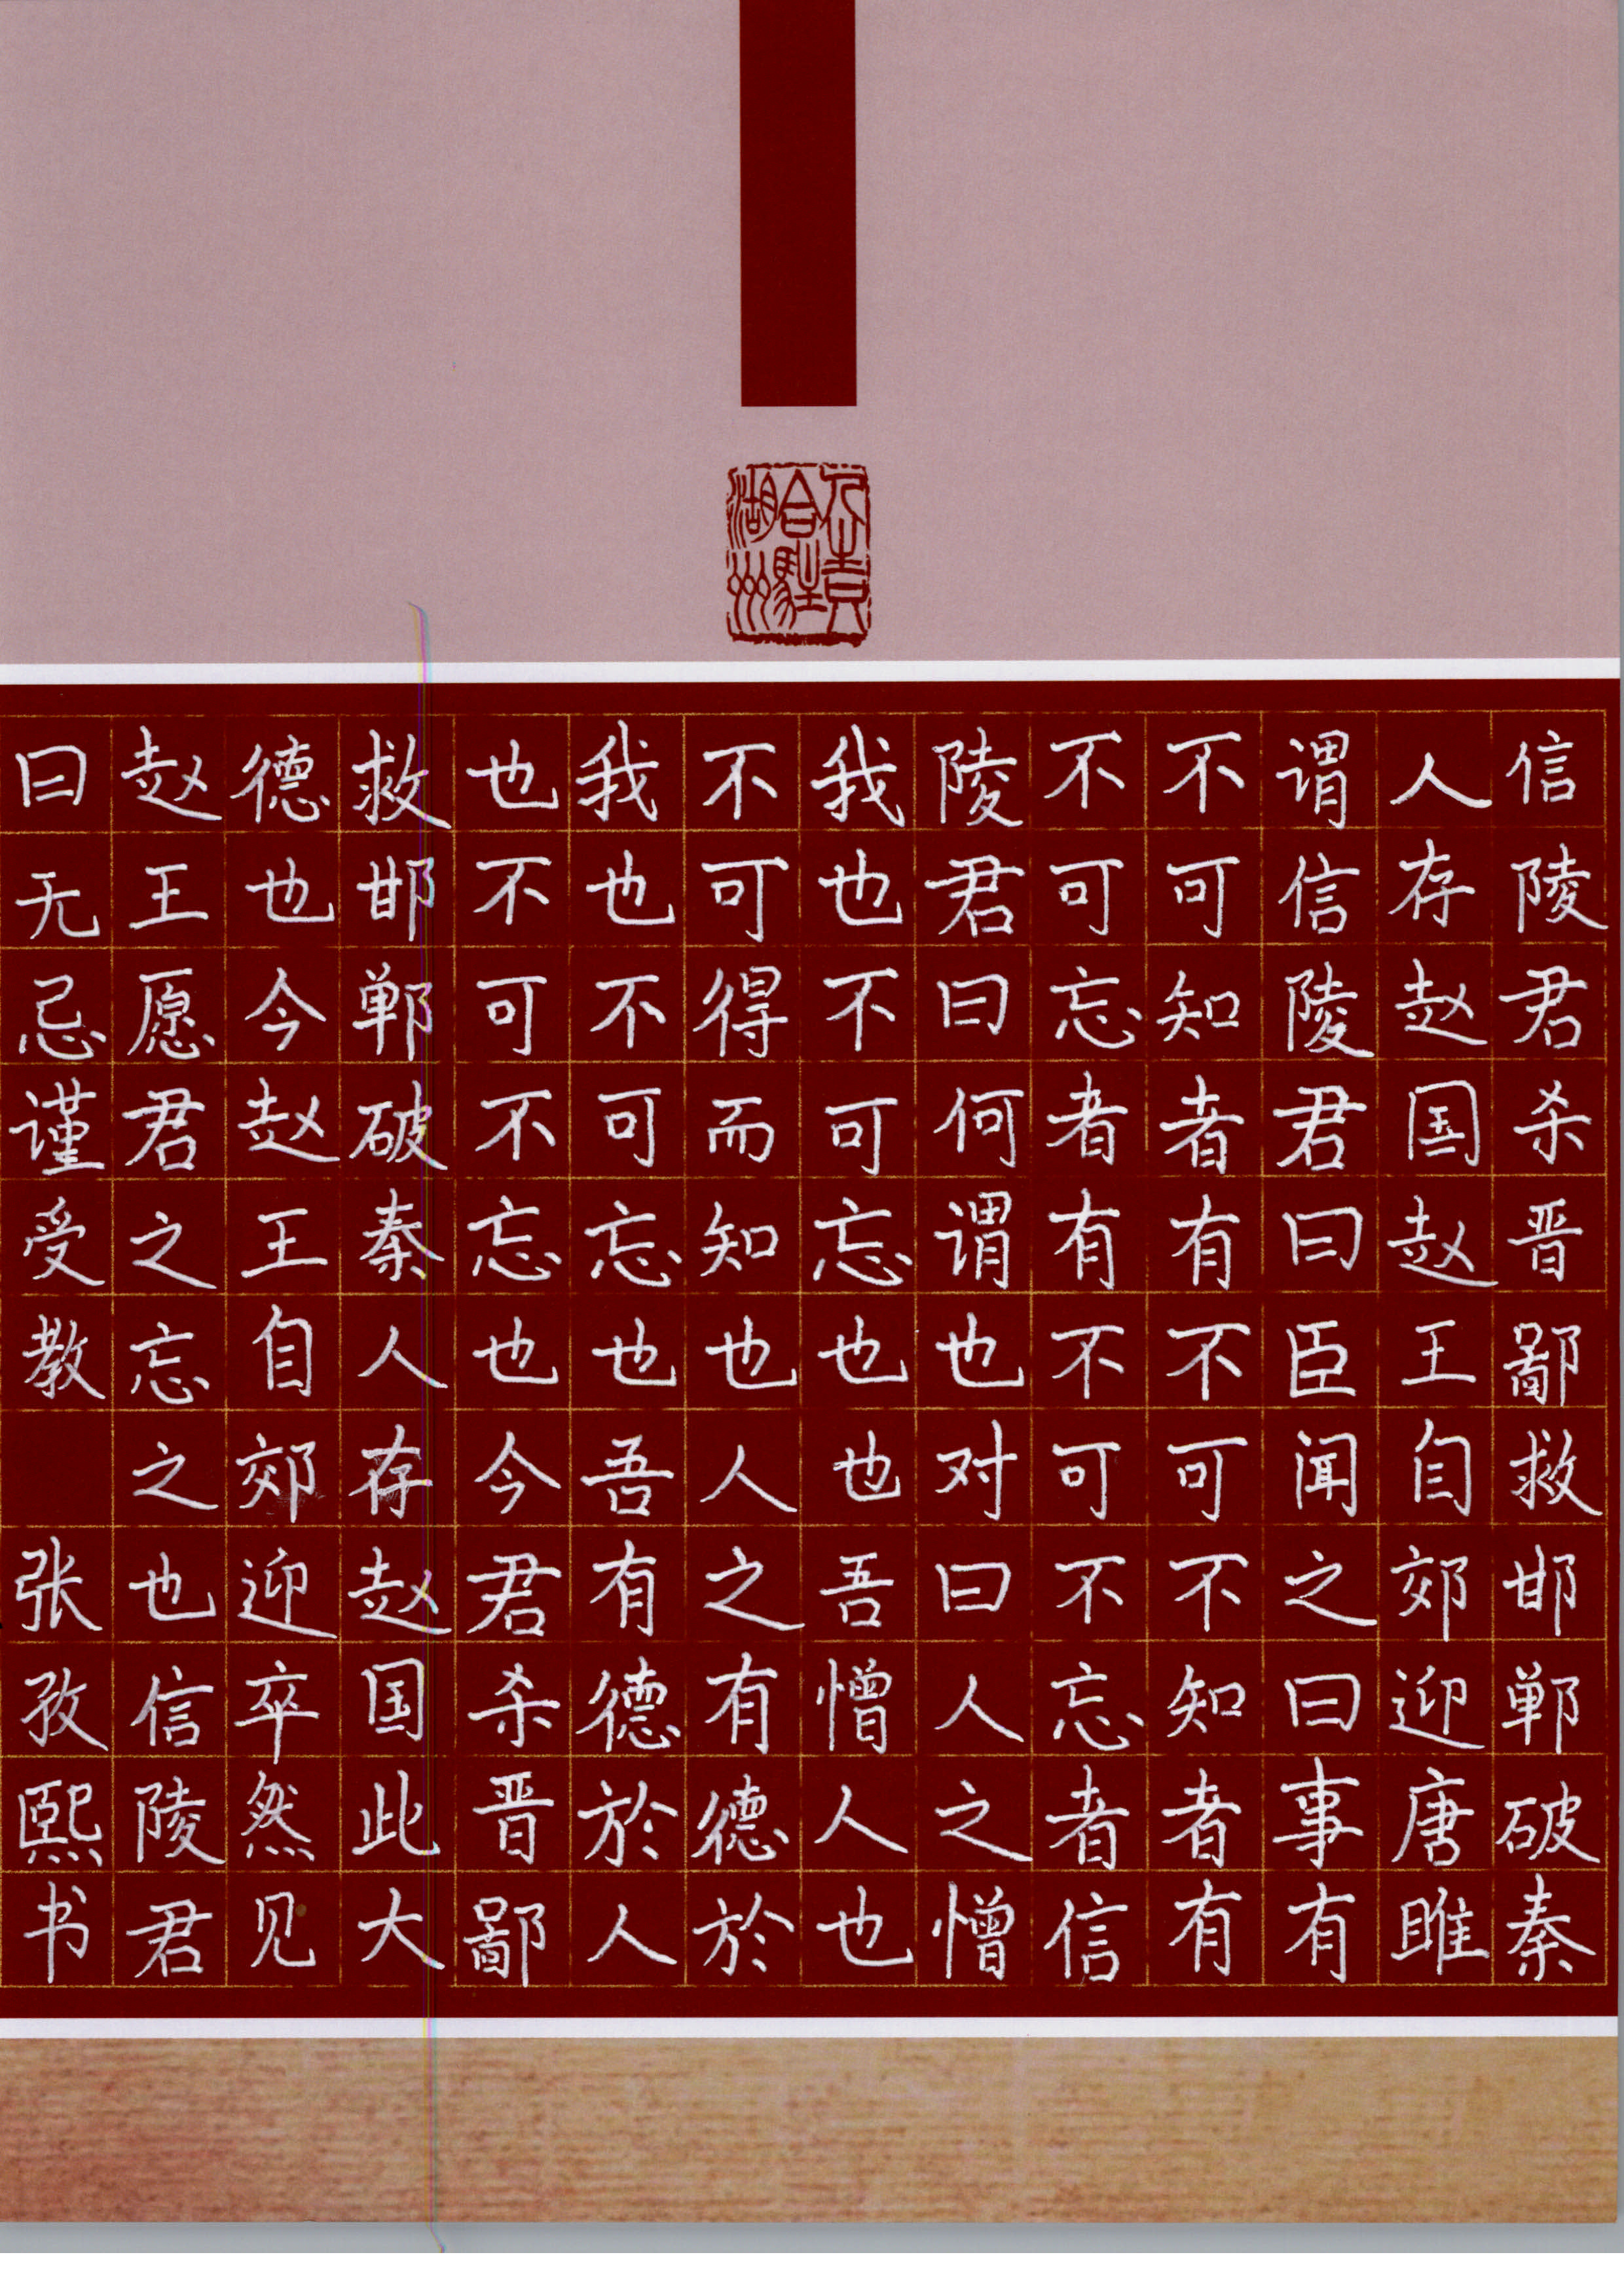 湖州
信陵君杀晋鄙救邯郸破秦
人存赵国赵王自郊迎唐雎
谓信陵君曰臣闻之曰事有
不可知者有不可不知者有
不可忘者有不可不忘者信
陵君曰何谓也对曰人之憎
我也不可忘也也吾憎人也
不可得而知也人之有德於
我也不可忘也吾有德於人
也不可不忘也今君杀晋鄙
救邯郸破秦人存赵国此大
德也今赵王自郊迎卒然见
赵王愿君之忘之也信陵君
曰无忌谨受教 张孜熙书